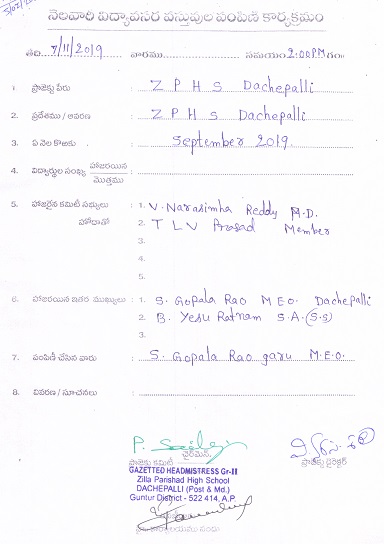 నెలవారి విద్యావసర వస్తువుల పంపిణీ కార్యక్రమం
తేది 7/11/2019 వారము సమయం 2:00PM గం.
1. ప్రాజెక్టు పేరు : Z P H S Dachepalli
2. ప్రదేశము / ఆవరణ : Z P H S Dachepalli
3. ఏ నెల కొఱకు : September 2019.
4. విద్యార్థుల సంఖ్య హాజరయిన :
మొత్తము
5. హాజరైన కమిటీ సభ్యులు : 1. V. Narasimha Reddy P.D.
హోదాతో 2. T L V Prasad Member
3.
4.
5.
6. హాజరయిన ఇతర ముఖ్యులు : 1. S. Gopala Rao M.E.O. Dachepalli
2. B. Yesu Ratnam S.A. (S.S)
3.
7. పంపిణీ చేసిన వారు : S. Gopala Rao garu M.E.O.
8. వివరణ / సూచనలు :
ప్రాజెక్టు కమిటీ ఛైర్మెన్. ప్రాజెక్టు డైరెక్టర్
GAZETTED HEADMISTRESS Gr-II
Zilla Parishad High School
DACHEPALLI (Post & Md.)
Guntur District - 522 414, A.P.